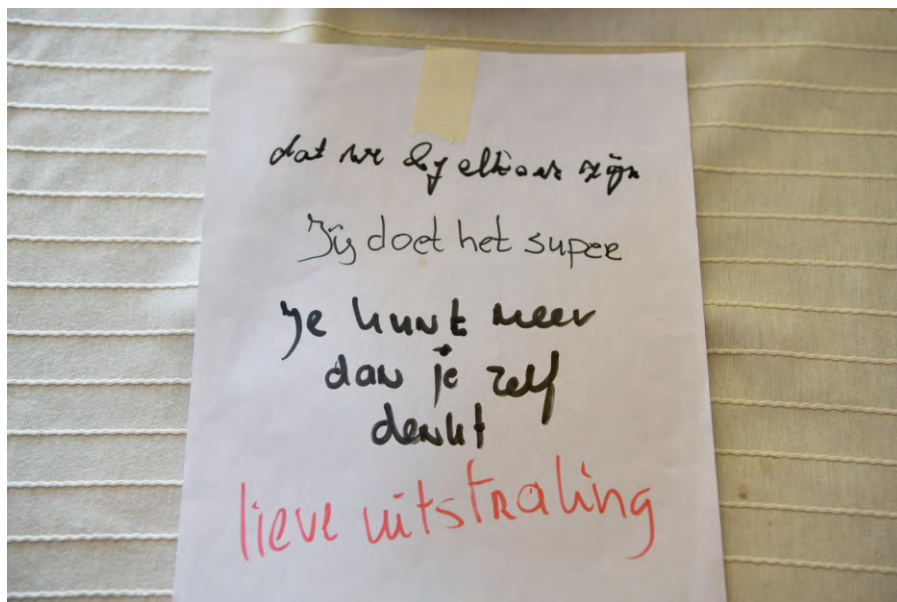 dat we by elkaar zijn
Jij doet het super
Je kunt meer
dan je zelf
denkt
lieve uitstraling